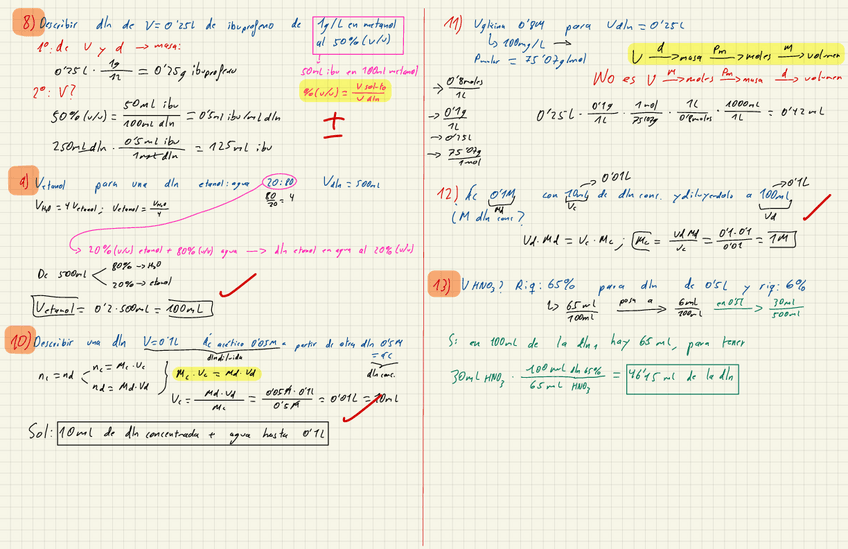 8) Describir dln de V=0'25L de ibuprofeno de 1g/L en metanol al 50% (v/v)
1º: de V y d → masa:
0'25L · 1g/1L = 0'25g ibuprofeno
50mL ibu en 100mL metanol
2º: V?
%(v/v) = V soluto/V dln
50%(v/v) = 50mL ibu/100mL dln = 0'5mL ibu/mL dln
250mL dln · 0'5mL ibu/1mL dln = 125mL ibu
9) Vetanol para una dln etanol:agua 20:80 Vdln = 500mL
VH₂O = 4 Vetanol; Vetanol = VH₂O/4
80/20 = 4
→ 20%(v/v) etanol + 80%(v/v) agua → dln etanol en agua al 20%(v/v)
De 500mL
80% → H₂O
20% → etanol
Vetanol = 0'2·500mL = 100mL
10) Describir una dln V=0'1L Ác acético 0'05M a partir de otra dln 0'5M
dln diluida
= Mc
dln conc.
nc = nd
nc = Mc·Vc
nd = Md·Vd
Mc·Vc = Md·Vd
Vc = Md·Vd/Mc = 0'05M·0'1L/0'5M = 0'01L = 10mL
Sol: 10mL de dln concentrada + agua hasta 0'1L
11) Vglicina 0'8M para Vdln = 0'25L
→ 100mg/L →
Pmolar = 75'07g/mol
V d→ masa Pm→ moles M→ volumen
No es V M→ moles Pm→ masa d→ volumen
→ 0'8moles/1L
→ 0'1g/1L
→ 0'25L
→ 75'07g/1mol
0'25L · 0'1g/1L · 1mol/75'07g · 1L/0'8moles · 1000mL/1L = 0'42mL
12) Ác 0'1M con 10mL de dln conc. y diluyendolo a 100mL
→ 0'01L
→ 0'1L
Md
Vc
Vd
¿M dln conc?
Vd·Md = Vc·Mc; Mc = Vd Md/Vc = 0'1·0'1/0'01 = 1M
13) V HNO₃? Riq: 65% para dln de 0'5L y riq: 6%
→ 65mL/100mL pasa a → 6mL/100mL en 0'5L → 30mL/500mL
Si en 100mL de la dln, hay 65mL, para tener
30mL HNO₃ · 100mL dln 65%/65mL HNO₃ = 46'15mL de la dln